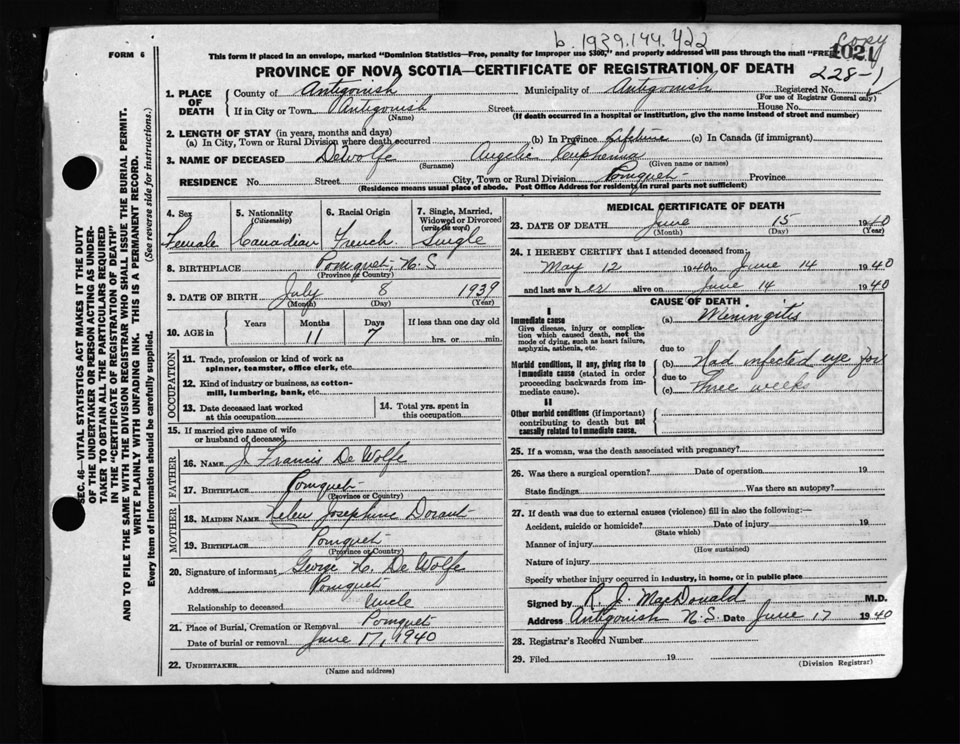 b. 1939.144.422
Copy
FORM 6
This form if placed in an envelope, marked "Dominion Statistics—Free, penalty for improper use $300," and properly addressed will pass through the mail "FREE
1021
228-1
PROVINCE OF NOVA SCOTIA—CERTIFICATE OF REGISTRATION OF DEATH
1. PLACE OF DEATH
County of Antigonish Municipality of Antigonish Registered No.
(For use of Registrar General only)
If in City or Town Antigonish Street House No.
(Name) (If death occurred in a hospital or institution, give the name instead of street and number)
2. LENGTH OF STAY (in years, months and days)
(a) In City, Town or Rural Division where death occurred (b) In Province Lifetime (c) In Canada (if immigrant)
3. NAME OF DECEASED DeWolfe Angelic Euphemia
(Surname) (Given name or names)
RESIDENCE No. Street City, Town or Rural Division Pomquet Province
(Residence means usual place of abode. Post Office Address for residents in rural parts not sufficient)
4. Sex Female
5. Nationality (Citizenship) Canadian
6. Racial Origin French
7. Single, Married, Widowed or Divorced (write the word) Single
8. BIRTHPLACE Pomquet, N.S.
(Province or Country)
9. DATE OF BIRTH July 8 1939
(Month) (Day) (Year)
10. AGE in Years Months Days If less than one day old
11 7 hrs. or min.
OCCUPATION
11. Trade, profession or kind of work as spinner, teamster, office clerk, etc.
12. Kind of industry or business, as cotton-mill, lumbering, bank, etc.
13. Date deceased last worked at this occupation
14. Total yrs. spent in this occupation
15. If married give name of wife or husband of deceased
FATHER
16. NAME J. Francis De Wolfe
17. BIRTHPLACE Pomquet
(Province or Country)
MOTHER
18. MAIDEN NAME Helen Josephine Dorant
19. BIRTHPLACE Pomquet
(Province or Country)
20. Signature of informant George H. De Wolfe
Address Pomquet
Relationship to deceased Uncle
21. Place of Burial, Cremation or Removal Pomquet
Date of burial or removal June 17, 1940
22. UNDERTAKER
(Name and address)
MEDICAL CERTIFICATE OF DEATH
23. DATE OF DEATH June 15 1940
(Month) (Day) (Year)
24. I HEREBY CERTIFY that I attended deceased from:
May 12 1940 to June 14 1940
and last saw her alive on June 14 1940
CAUSE OF DEATH
I
Immediate cause
Give disease, injury or complication which caused death, not the mode of dying, such as heart failure, asphyxia, asthenia, etc.
(a) Meningitis
due to
Morbid conditions, if any, giving rise to immediate cause (stated in order proceeding backwards from immediate cause)
(b) Had infected eye for
due to
(c) Three weeks
II
Other morbid conditions (if important) contributing to death but not causally related to immediate cause.
25. If a woman, was the death associated with pregnancy?
26. Was there a surgical operation? Date of operation 19
State findings Was there an autopsy?
27. If death was due to external causes (violence) fill in also the following:—
Accident, suicide or homicide? Date of injury 19
(State which)
Manner of injury
(How sustained)
Nature of injury
Specify whether injury occurred in industry, in home, or in public place
Signed by R. J. MacDonald M.D.
Address Antigonish N.S. Date June 17 1940
28. Registrar's Record Number
29. Filed 19
(Division Registrar)
SEC. 46—VITAL STATISTICS ACT MAKES IT THE DUTY
OF THE UNDERTAKER OR PERSON ACTING AS UNDER-
TAKER TO OBTAIN ALL THE PARTICULARS REQUIRED
IN THE "CERTIFICATE OF REGISTRATION OF DEATH"
AND TO FILE THE SAME WITH THE DIVISION REGISTRAR WHO SHALL ISSUE THE BURIAL PERMIT.
WRITE PLAINLY WITH UNFADING INK. THIS IS A PERMANENT RECORD.
Every item of information should be carefully supplied. (See reverse side for instructions.)